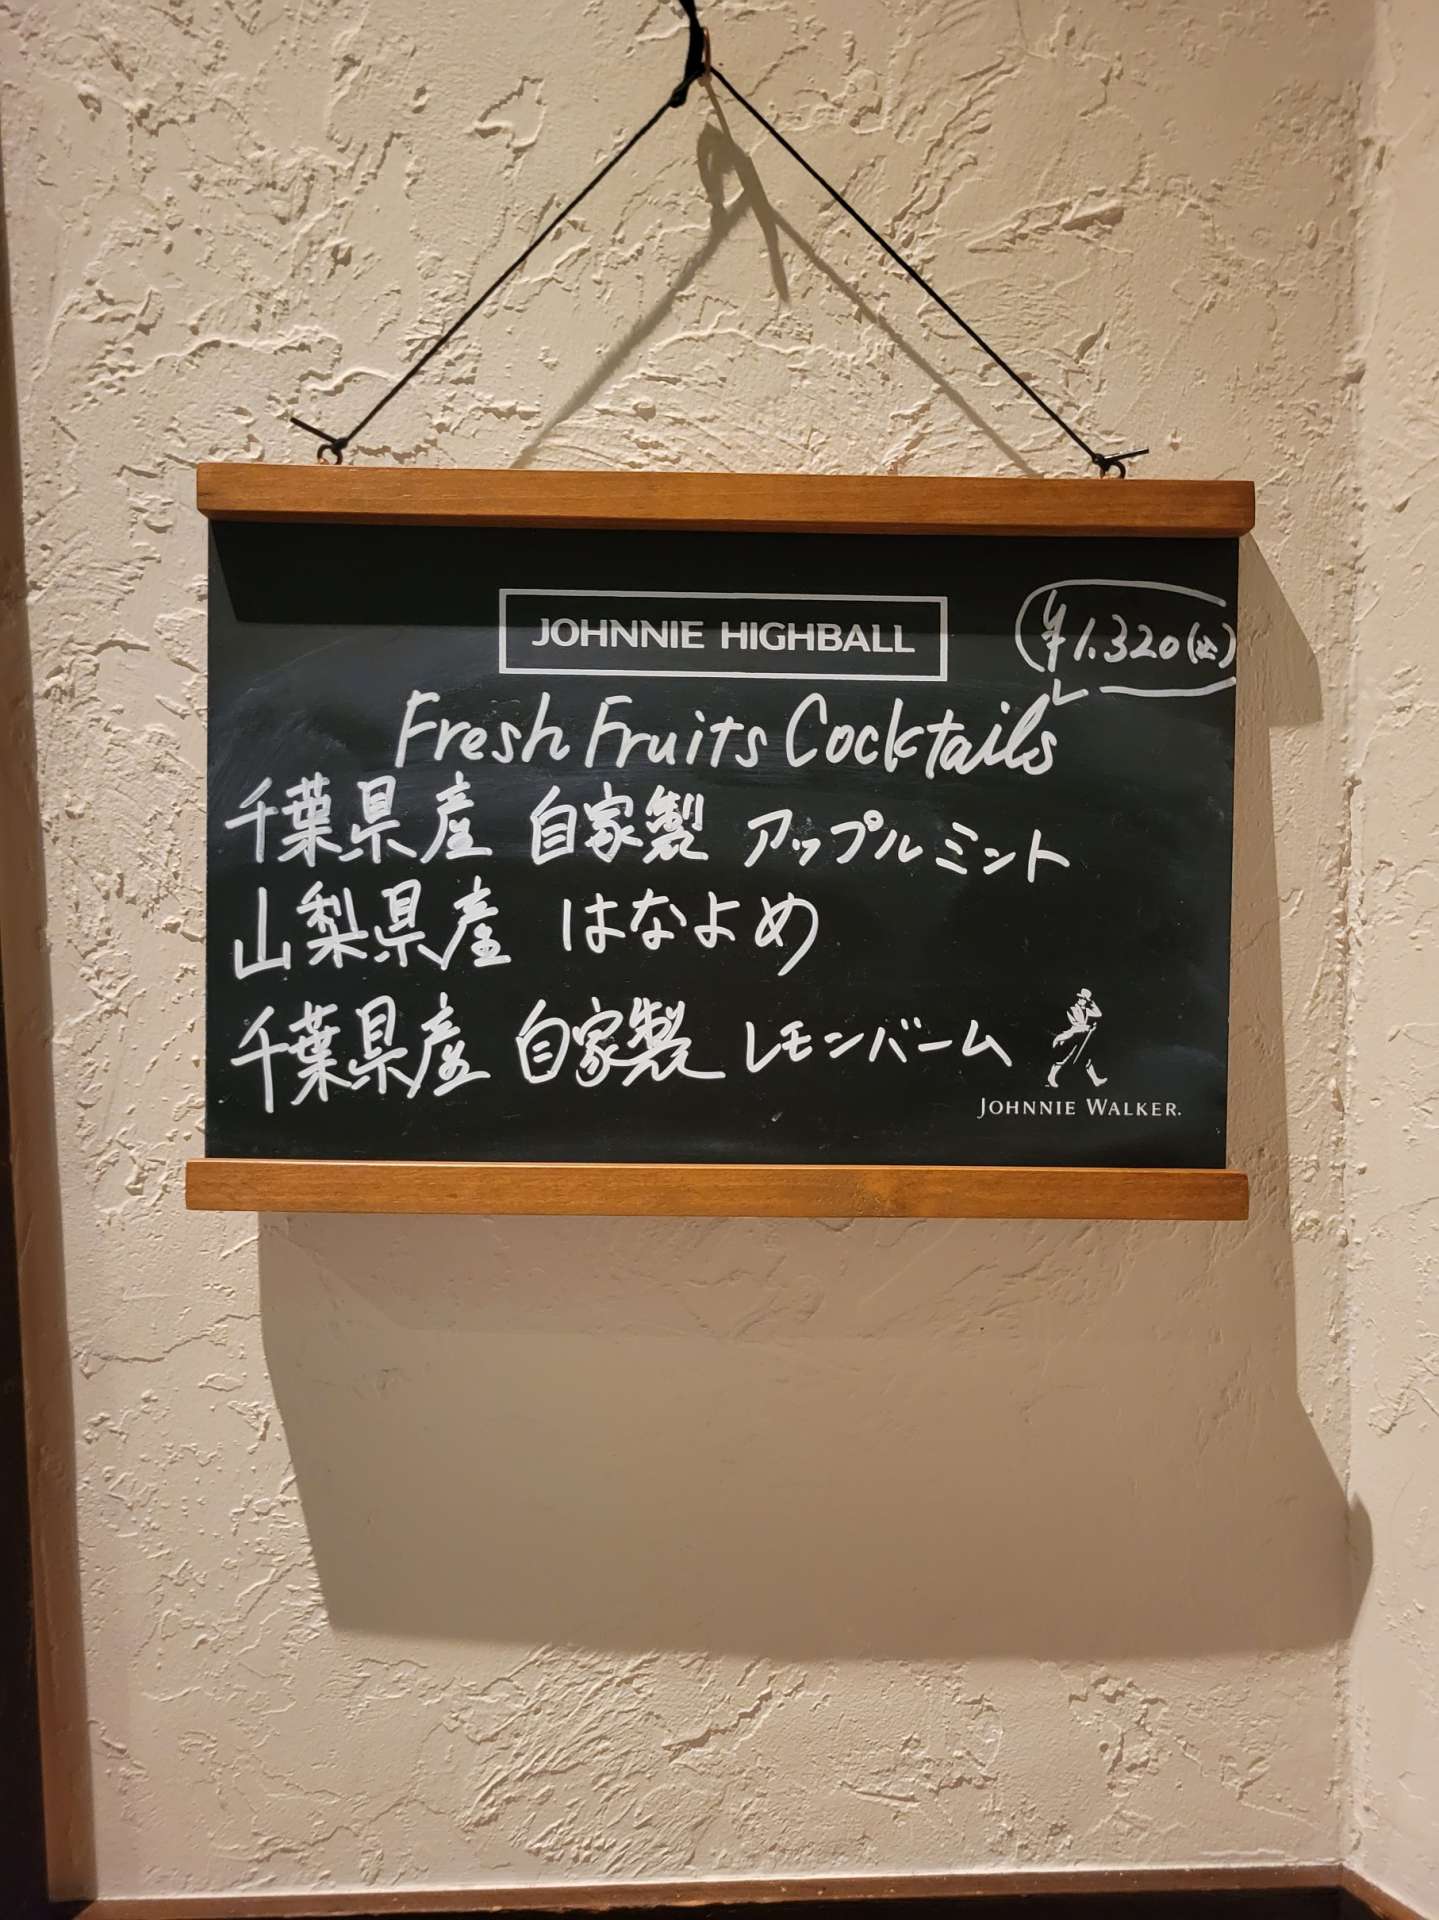 JOHNNIE HIGHBALL
¥1.320(込)
Fresh Fruits Cocktails
千葉県産 自家製 アップルミント
山梨県産 はなよめ
千葉県産 自家製 レモンバーム
JOHNNIE WALKER.